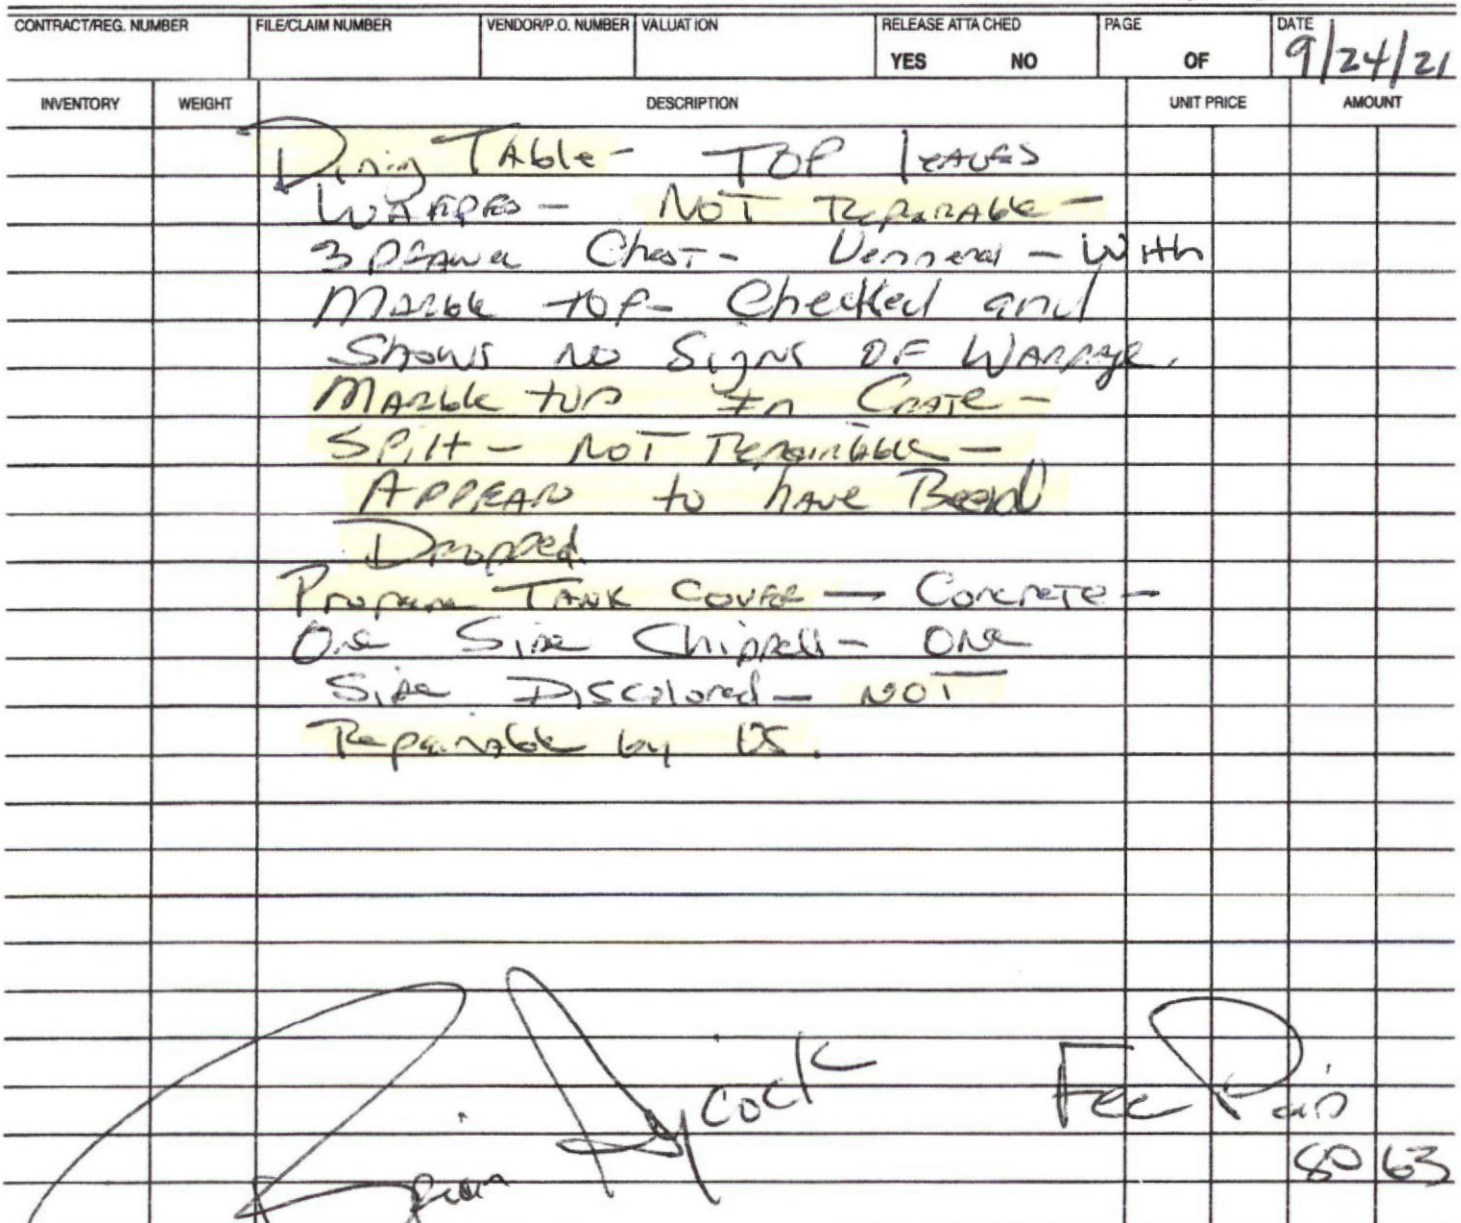 CONTRACT/REG. NUMBER FILE/CLAIM NUMBER VENDOR/P.O. NUMBER VALUATION RELEASE ATTACHED PAGE DATE
YES NO OF 9/24/21
INVENTORY WEIGHT DESCRIPTION UNIT PRICE AMOUNT
Dining Table - TOP leaves
WARPED - NOT Repairable -
3 Drawer Chest - Venneral - With
Marble top - Checked and
Shows no Signs OF Warpage.
Marble top In Crate -
Split - NOT Repairable -
Appears to have Been
Dropped
Propane Tank Cover - Concrete -
One Side Chipped - One
Side Discolored - NOT
Repairable by US.
Brian Aycock Fee Paid
80 63